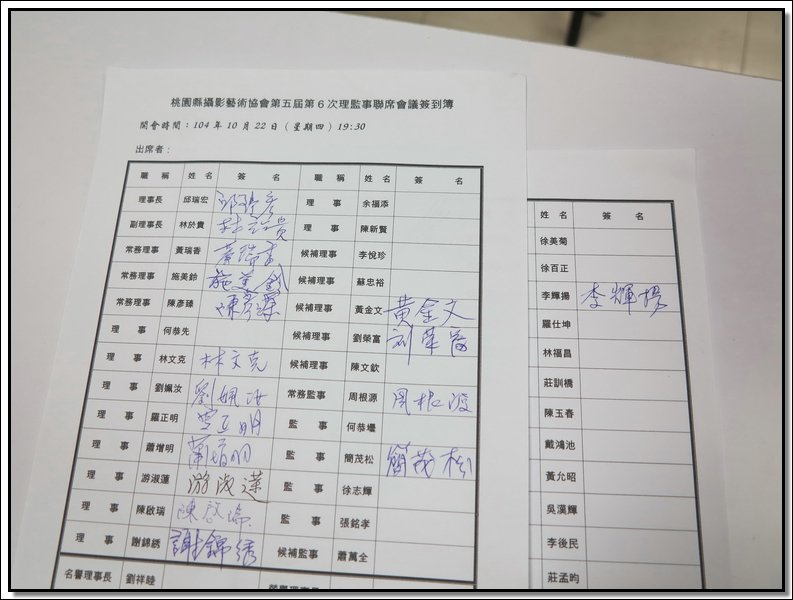 桃園縣攝影藝術協會第五屆第6次理監事聯席會議簽到簿
開會時間：104年10月22日（星期四）19:30
出席者：
職稱 姓名 簽名 職稱 姓名 簽名
理事長 邱瑞宏 理事 余福添
副理事長 林於貴 理事 陳新賢
常務理事 黃瑞香 黃瑞香 候補理事 李悅珍
常務理事 施美鈴 施美鈴 候補理事 蘇忠裕
常務理事 陳彥臻 陳彥臻 候補理事 黃金文 黃金文
理事 何恭先 候補理事 劉榮富 刘榮富
理事 林文克 林文克 候補理事 陳文欽
理事 劉姵汝 劉姵汝 常務監事 周根源 周根源
理事 羅正明 監事 何恭壜
理事 蕭增明 監事 簡茂松 簡茂松
理事 游淑蓮 游淑蓮 監事 徐志輝
理事 陳啟瑞 陳啟瑞 監事 張銘孝
理事 謝錦綉 謝錦綉 候補監事 蕭萬全
名譽理事長 劉祥睦
姓名 簽名
徐美菊
徐百正
李輝揚 李輝揚
羅仕坤
林福昌
莊訓橋
陳玉春
戴鴻池
黃允昭
吳漢輝
李後民
莊孟昀